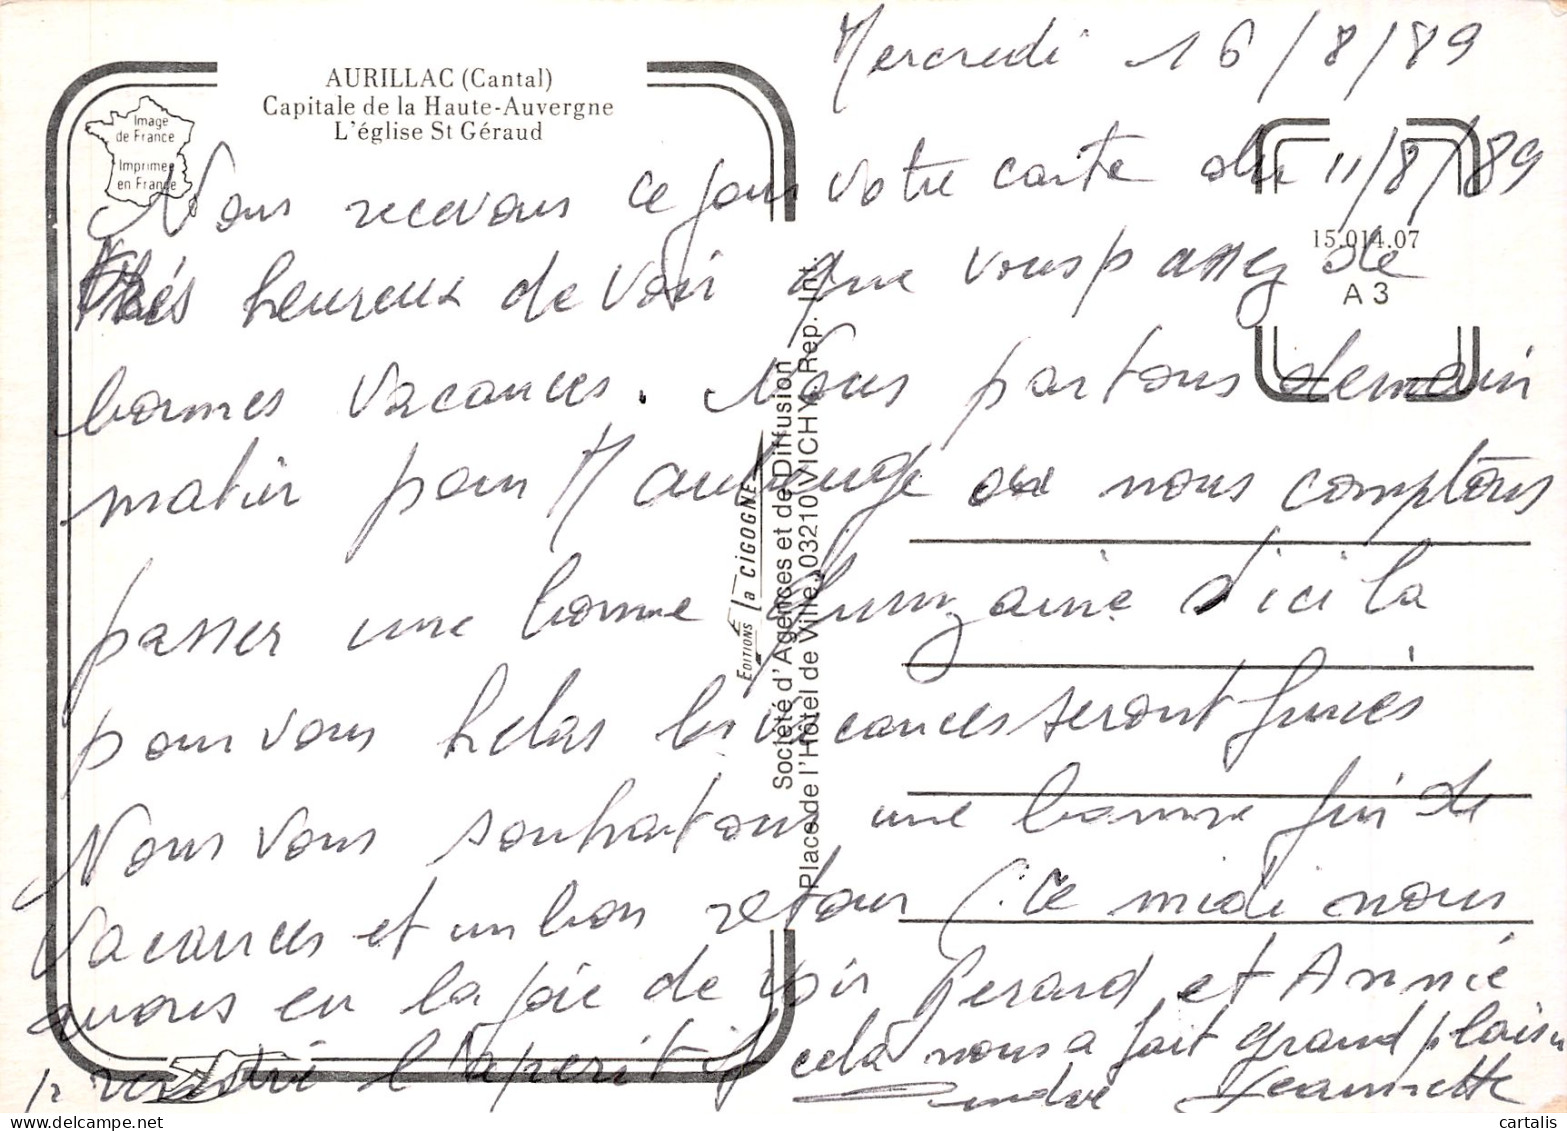 Mercredi 16/8/89
AURILLAC (Cantal)
Capitale de la Haute-Auvergne
L'église St Géraud
Image
de France
Imprimée
en France
Nous recevons ce jour votre carte du 11/8/89
très heureux de voir que vous passez de
bonnes vacances. Nous partons demain
matin pour Maubeuge où nous comptons
passer une bonne quinzaine d'ici la
pour vous helas les vacances seront finies
Nous vous souhaitons une bonne fin de
vacances et un bon retour. Ce midi nous
avons eu la joie de voir Gerard et Annie
prendre l'aperitif cela nous a fait grand plaisir
André Jeannette
15.014.07
A 3
EDITIONS la CIGOGNE
Société d'Agences et de Diffusion
Place de l'Hôtel de Ville, 03210 VICHY. Rep. Int.
cartalis